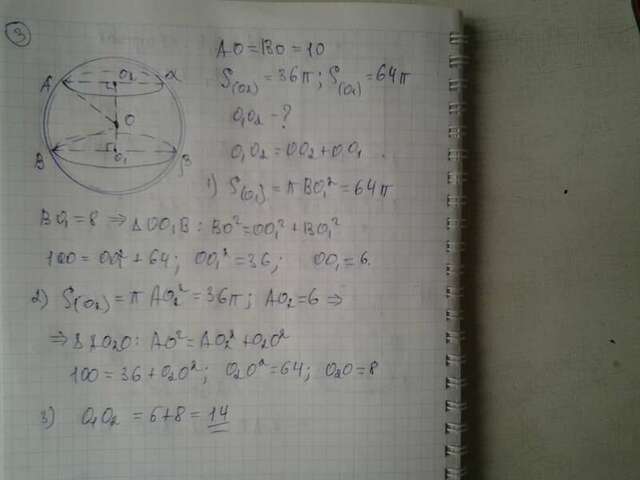 3
AO = BO = 10
S(O₂) = 36π ; S(O₁) = 64π
O₁O₂ - ?
O₁O₂ = OO₂ + OO₁
A O₂ α
O
B O₁ β
1) S(O₁) = π BO₁² = 64π
BO₁ = 8 ⇒ Δ OO₁B : BO² = OO₁² + BO₁²
100 = OO₁² + 64 ; OO₁² = 36 ; OO₁ = 6.
2) S(O₂) = π AO₂² = 36π ; AO₂ = 6 ⇒
⇒ Δ AO₂O : AO² = AO₂² + O₂O²
100 = 36 + O₂O² ; O₂O² = 64 ; O₂O = 8
3) O₁O₂ = 6 + 8 = 14